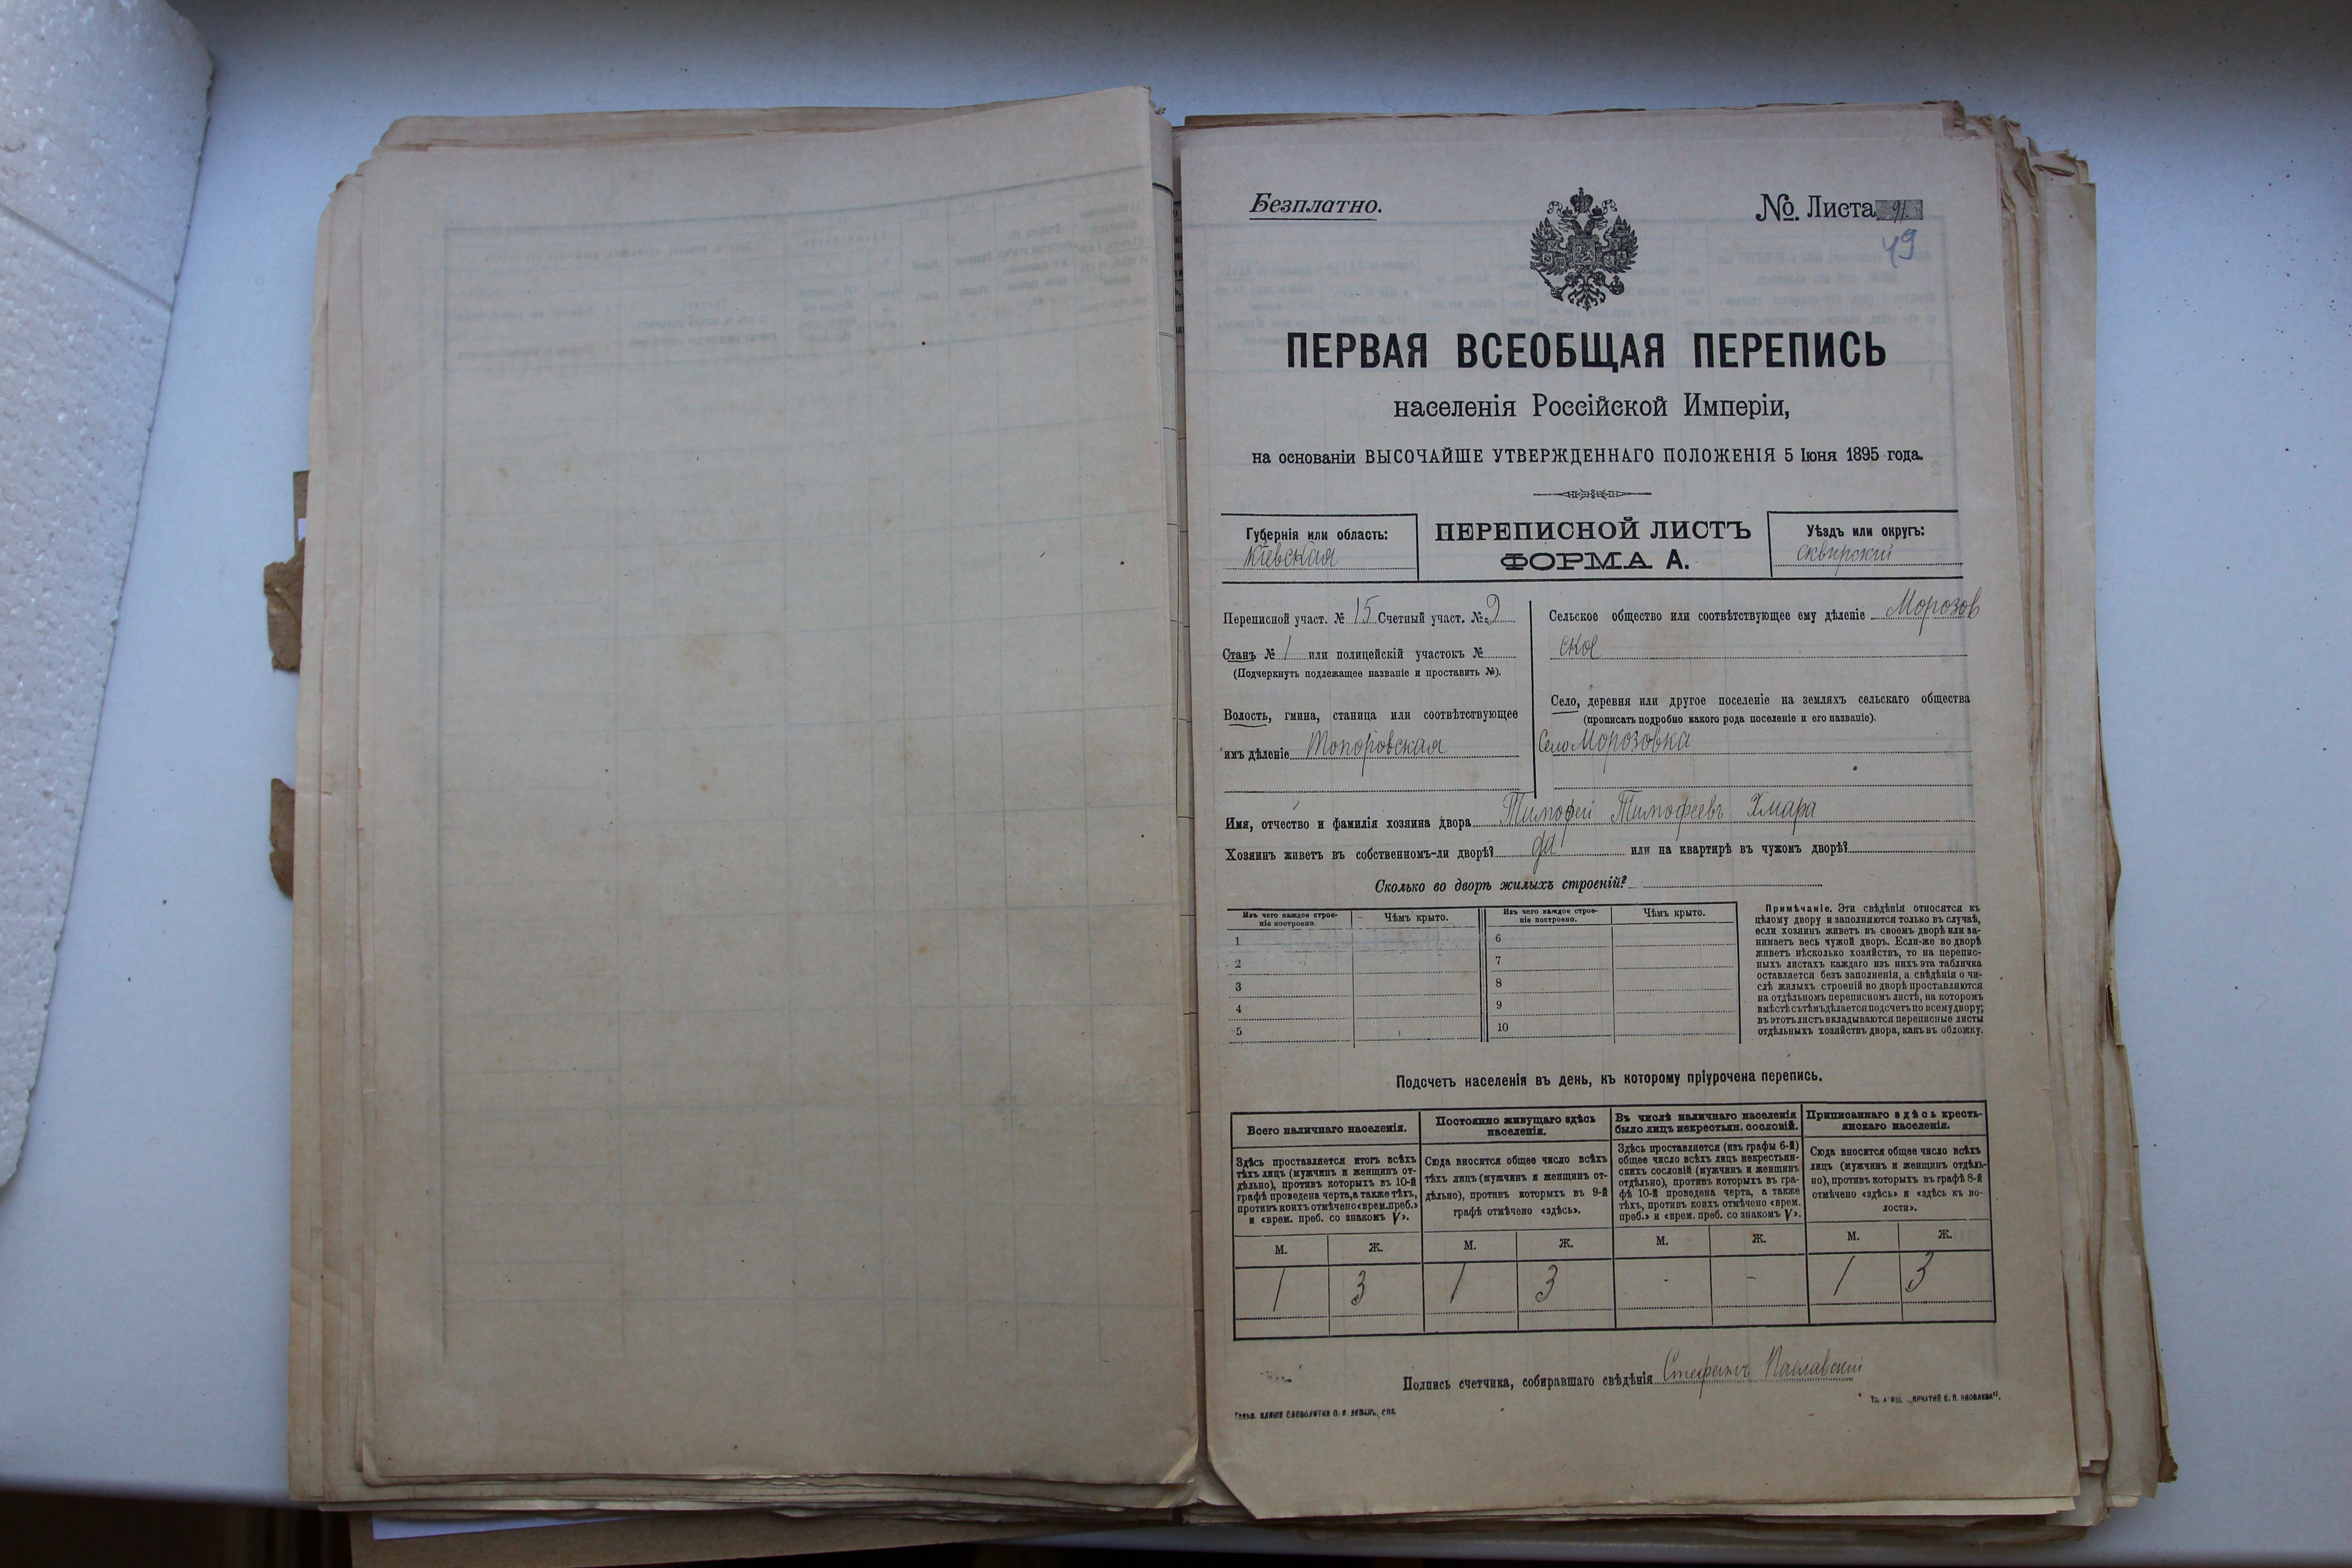 Безплатно.
№. Листа 91
49
ПЕРВАЯ ВСЕОБЩАЯ ПЕРЕПИСЬ
населенія Россійской Имперіи,
на основаніи ВЫСОЧАЙШЕ УТВЕРЖДЕННАГО ПОЛОЖЕНІЯ 5 Іюня 1895 года.
Губернія или область:
Кіевская
ПЕРЕПИСНОЙ ЛИСТЪ
ФОРМА А.
Уѣздъ или округъ:
сквирскій
Переписной участ. № 15 Счетный участ. № 9
Станъ № 1 или полицейскій участокъ №
(Подчеркнуть подлежащее названіе и проставить №).
Волость, гмина, станица или соотвѣтствующее
имъ дѣленіе Топоровская
Сельское общество или соотвѣтствующее ему дѣленіе Морозов
ское
Село, деревня или другое поселеніе на земляхъ сельскаго общества
(прописать подробно какого рода поселеніе и его названіе).
Село Морозовка
Имя, отчество и фамилія хозяина двора Тимофей Тимофеевъ Хмара
Хозяинъ живетъ въ собственномъ-ли дворѣ? да или на квартирѣ въ чужомъ дворѣ?
Сколько во дворѣ жилыхъ строеній?
Изъ чего каждое строе-
ніе построено.
Чѣмъ крыто.
Изъ чего каждое строе-
ніе построено.
Чѣмъ крыто.
1 6
2 7
3 8
4 9
5 10
Примѣчаніе. Эти свѣдѣнія относятся къ
цѣлому двору и заполняются только въ случаѣ,
если хозяинъ живетъ въ своемъ дворѣ или за-
нимаетъ весь чужой дворъ. Если-же во дворѣ
живетъ нѣсколько хозяйствъ, то на перепис-
ныхъ листахъ каждаго изъ нихъ эта табличка
оставляется безъ заполненія, а свѣдѣнія о чи-
слѣ жилыхъ строеній во дворѣ проставляются
на отдѣльномъ переписномъ листѣ, на которомъ
вмѣстѣ съ тѣмъ дѣлается подсчетъ по всему двору;
въ этотъ листъ вкладываются переписные листы
отдѣльныхъ хозяйствъ двора, какъ въ обложку.
Подсчетъ населенія въ день, къ которому пріурочена перепись.
Всего наличнаго населенія.
Здѣсь проставляется итогъ всѣхъ
тѣхъ лицъ (мужчинъ и женщинъ от-
дѣльно), противъ которыхъ въ 10-й
графѣ проведена черта, а также тѣхъ,
противъ коихъ отмѣчено «врем. преб.»
и «врем. преб. со знакомъ V».
Постоянно живущаго здѣсь
населенія.
Сюда вносится общее число всѣхъ
тѣхъ лицъ (мужчинъ и женщинъ от-
дѣльно), противъ которыхъ въ 9-й
графѣ отмѣчено «здѣсь».
Въ числѣ наличнаго населенія
было лицъ некрестьян. сословій.
Здѣсь проставляется (изъ графы 6-й)
общее число всѣхъ лицъ некрестьян-
скихъ сословій (мужчинъ и женщинъ
отдѣльно), противъ которыхъ въ гра-
фѣ 10-й проведена черта, а также
тѣхъ, противъ коихъ отмѣчено «врем.
преб.» и «врем. преб. со знакомъ V».
Приписаннаго здѣсь кресть-
янскаго населенія.
Сюда вносится общее число всѣхъ
лицъ (мужчинъ и женщинъ отдѣль-
но), противъ которыхъ въ графѣ 8-й
отмѣчено «здѣсь» и «здѣсь къ во-
лости».
М. Ж. М. Ж. М. Ж. М. Ж.
1 3 1 3 - - 1 3
Подпись счетчика, собиравшаго свѣдѣнія Стефанъ